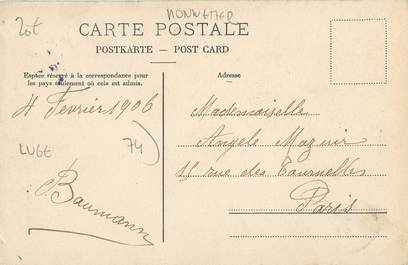 20t
MONNETIER
CARTE POSTALE
POSTKARTE — POST CARD
Espace réservé à la correspondance pour
les pays seulement où cela est admis.
Adresse
4 Fevrier 1906
LUGE
74
Baumann
Mademoiselle
Angèle Mazuir
15 rue des Tournelles
Paris